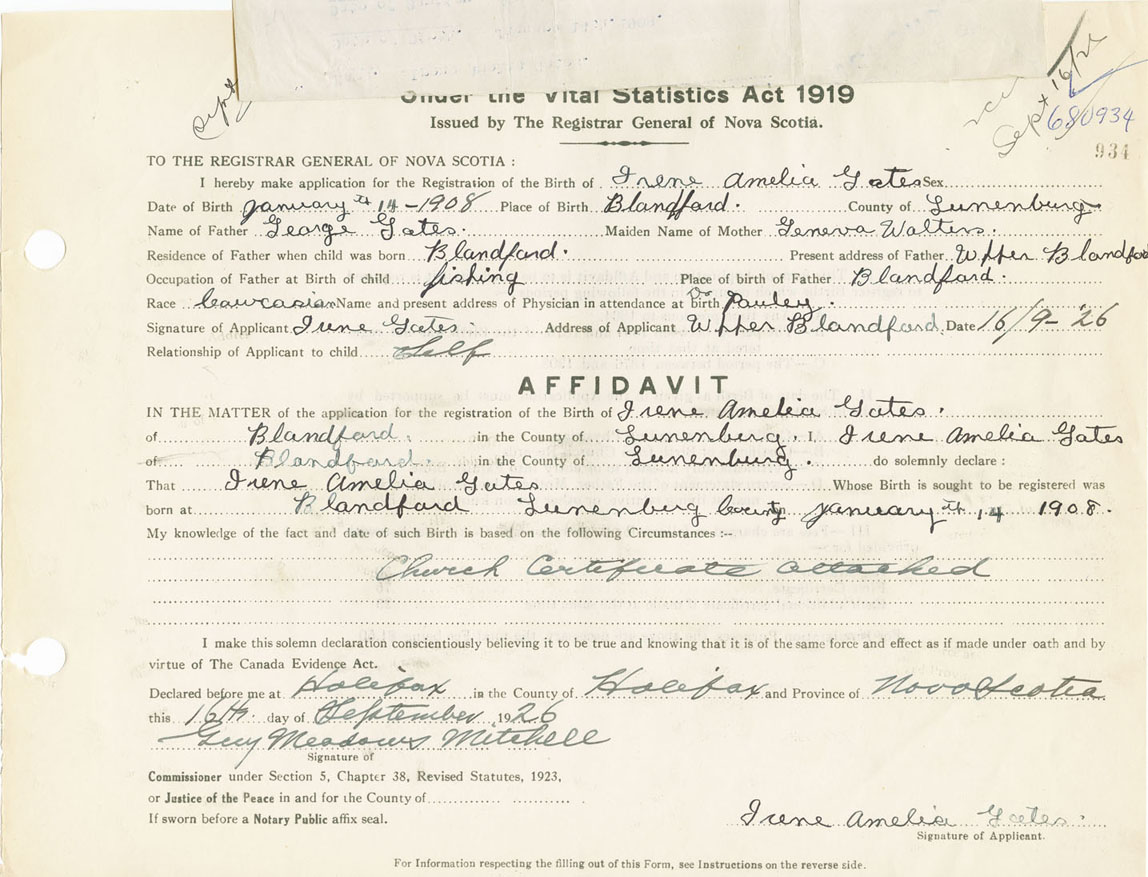 Sept
Sept 16/26
680934
934
Under the Vital Statistics Act 1919
Issued by The Registrar General of Nova Scotia.
TO THE REGISTRAR GENERAL OF NOVA SCOTIA :
I hereby make application for the Registration of the Birth of Irene Amelia Gates Sex
Date of Birth January th 14-1908 Place of Birth Blandford. County of Lunenburg.
Name of Father George Gates. Maiden Name of Mother Geneva Walters.
Residence of Father when child was born Blandford. Present address of Father Upper Blandford
Occupation of Father at Birth of child fishing Place of birth of Father Blandford.
Race Caurcasian Name and present address of Physician in attendance at birth Dr Pauley.
Signature of Applicant Irene Gates. Address of Applicant Upper Blandford. Date 16/9-'26
Relationship of Applicant to child Self
AFFIDAVIT
IN THE MATTER of the application for the registration of the Birth of Irene Amelia Gates.
of Blandford. in the County of Lunenburg. I, Irene Amelia Gates
of Blandford. in the County of Lunenburg. do solemnly declare :
That Irene Amelia Gates Whose Birth is sought to be registered was
born at Blandford Lunenburg County January th 14 1908.
My knowledge of the fact and date of such Birth is based on the following Circumstances :--
Church Certificate attached
I make this solemn declaration conscientiously believing it to be true and knowing that it is of the same force and effect as if made under oath and by
virtue of The Canada Evidence Act.
Declared before me at Halifax in the County of Halifax and Province of Nova Scotia
this 16th day of September 1926
Guy Meadows Mitchell
Signature of
Commissioner under Section 5, Chapter 38, Revised Statutes, 1923,
or Justice of the Peace in and for the County of
If sworn before a Notary Public affix seal.
Irene Amelia Gates.
Signature of Applicant.
For Information respecting the filling out of this Form, see Instructions on the reverse side.